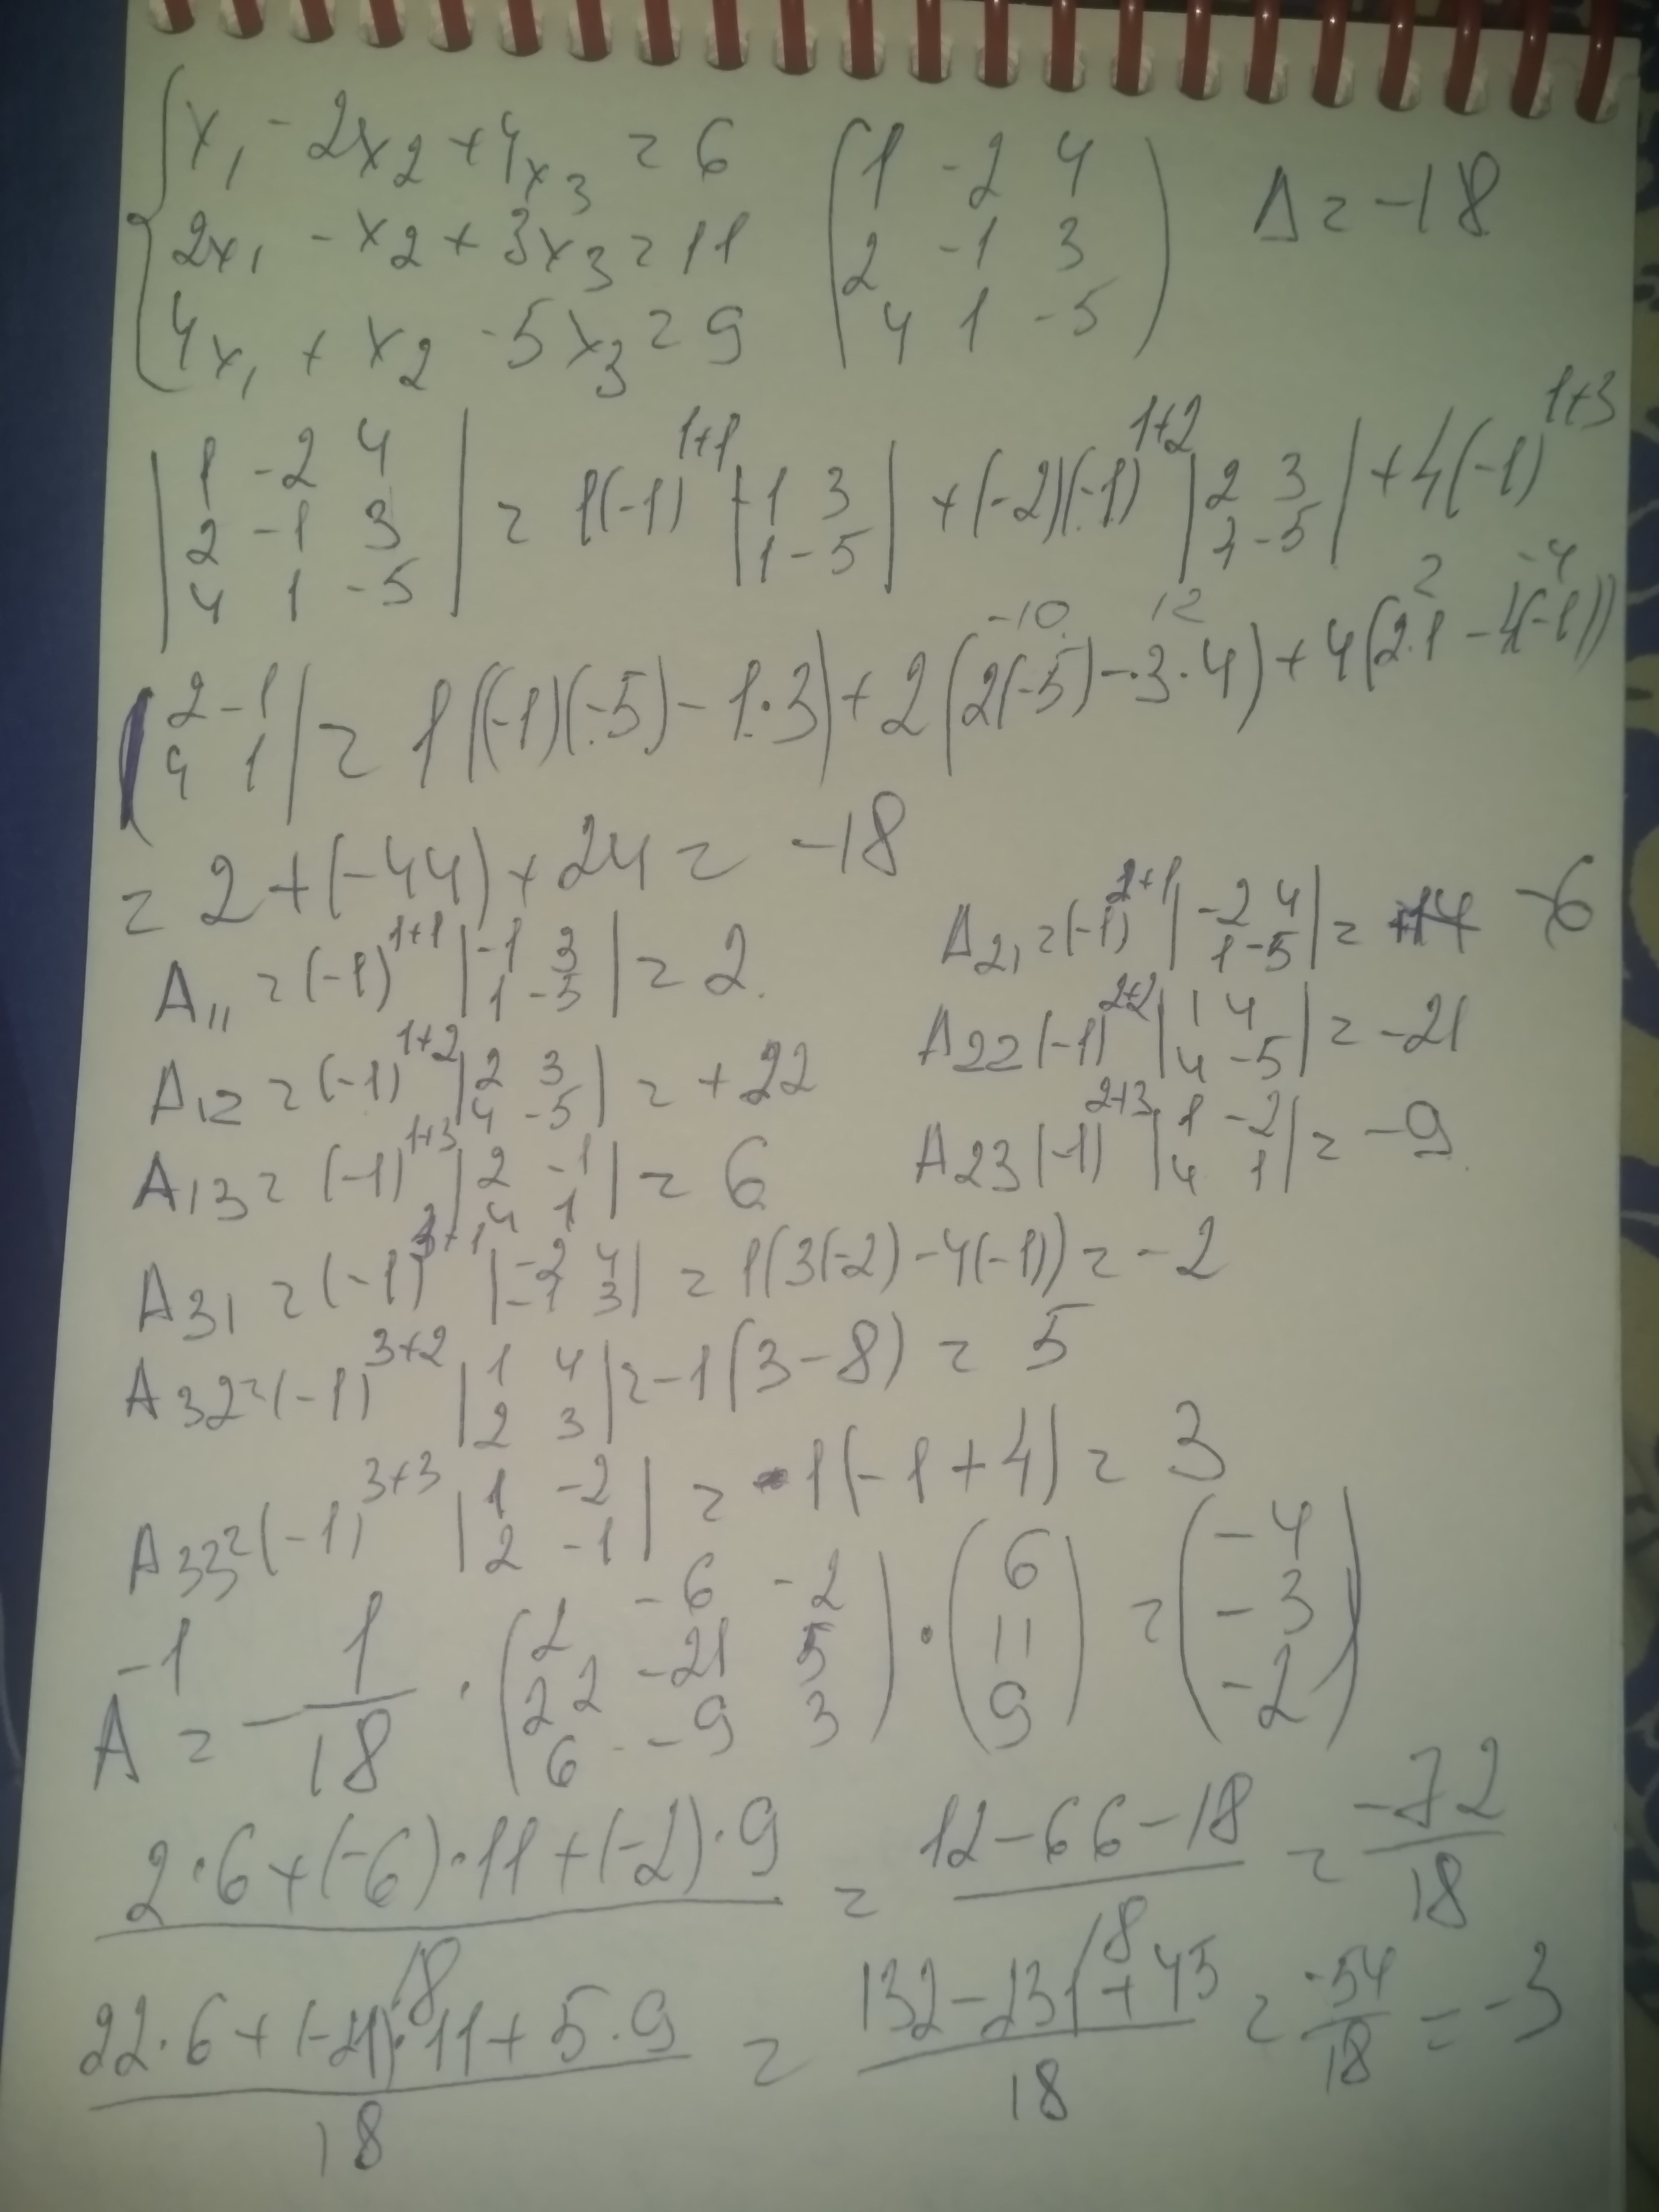 x₁ - 2x₂ + 4x₃ = 6 (1 -2 4 Δ = -18
2x₁ - x₂ + 3x₃ = 11 2 -1 3
4x₁ + x₂ - 5x₃ = 9 4 1 -5)
|1 -2 4
2 -1 3
4 1 -5| = 1(-1)¹⁺¹ |-1 3
1 -5| + (-2)(-1)¹⁺² |2 3
4 -5| + 4(-1)¹⁺³
-10 12 2 -4
|2 -1
4 1| = 1((-1)(-5) - 1·3) + 2(2(-5) - 3·4) + 4(2·1 - 4(-1))
= 2 + (-44) + 24 = -18
A₁₁ = (-1)¹⁺¹ |-1 3
1 -5| = 2
A₁₂ = (-1)¹⁺² |2 3
4 -5| = +22
A₁₃ = (-1)¹⁺³ |2 -1
4 1| = 6
A₂₁ = (-1)²⁺¹ |-2 4
1 -5| = -6
A₂₂ (-1)²⁺² |1 4
4 -5| = -21
A₂₃ (-1)²⁺³ |1 -2
4 1| = -9
A₃₁ = (-1)³⁺¹ |-2 4
-1 3| = 1(3(-2) - 4(-1)) = -2
A₃₂ = (-1)³⁺² |1 4
2 3| = -1(3 - 8) = 5
A₃₃ = (-1)³⁺³ |1 -2
2 -1| = 1(-1 + 4) = 3
A⁻¹ = - 1/18 · (2 -6 -2
22 -21 5
6 -9 3) · (6
11
9) = (-4
-3
-2)
2·6 + (-6)·11 + (-2)·9 / 18 = 12 - 66 - 18 / 18 = -72 / 18
22·6 + (-21)·11 + 5·9 / 18 = 132 - 231 + 45 / 18 = -54 / 18 = -3